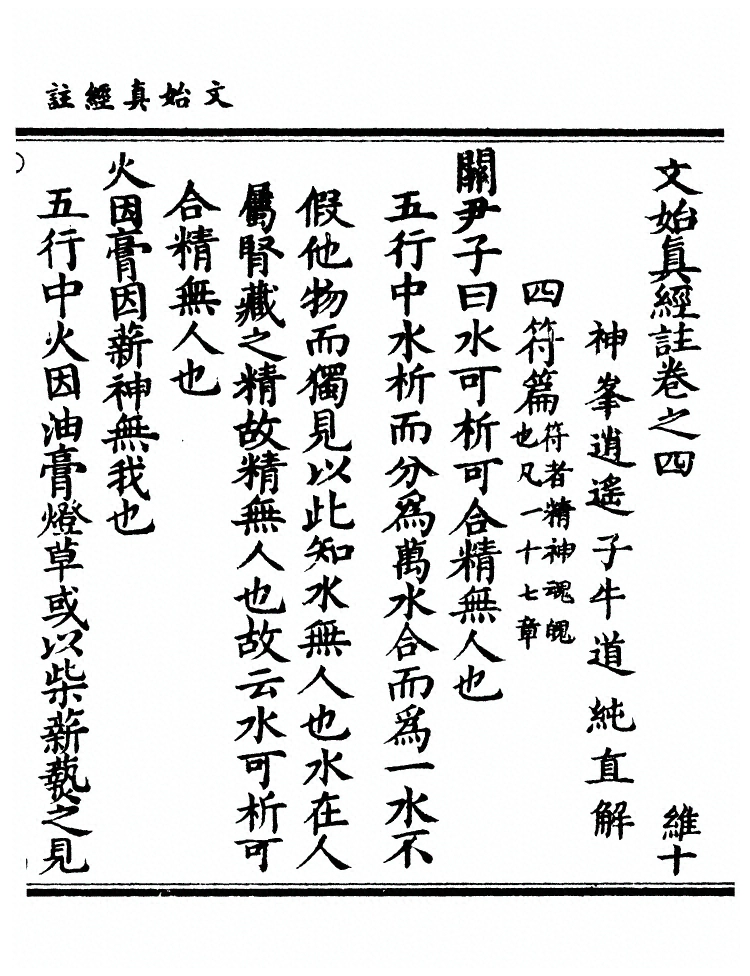 文始真經註
文始眞經註卷之四 維十
神峯逍遙子牛道純直解
四符篇符者精神魂魄
也凡一十七章
關尹子曰水可析可合精無人也
五行中水析而分爲萬水合而爲一水不
假他物而獨見以此知水無人也水在人
屬腎藏之精故精無人也故云水可析可
合精無人也
火因膏因薪神無我也
五行中火因油膏燈草或以柴薪爇之見